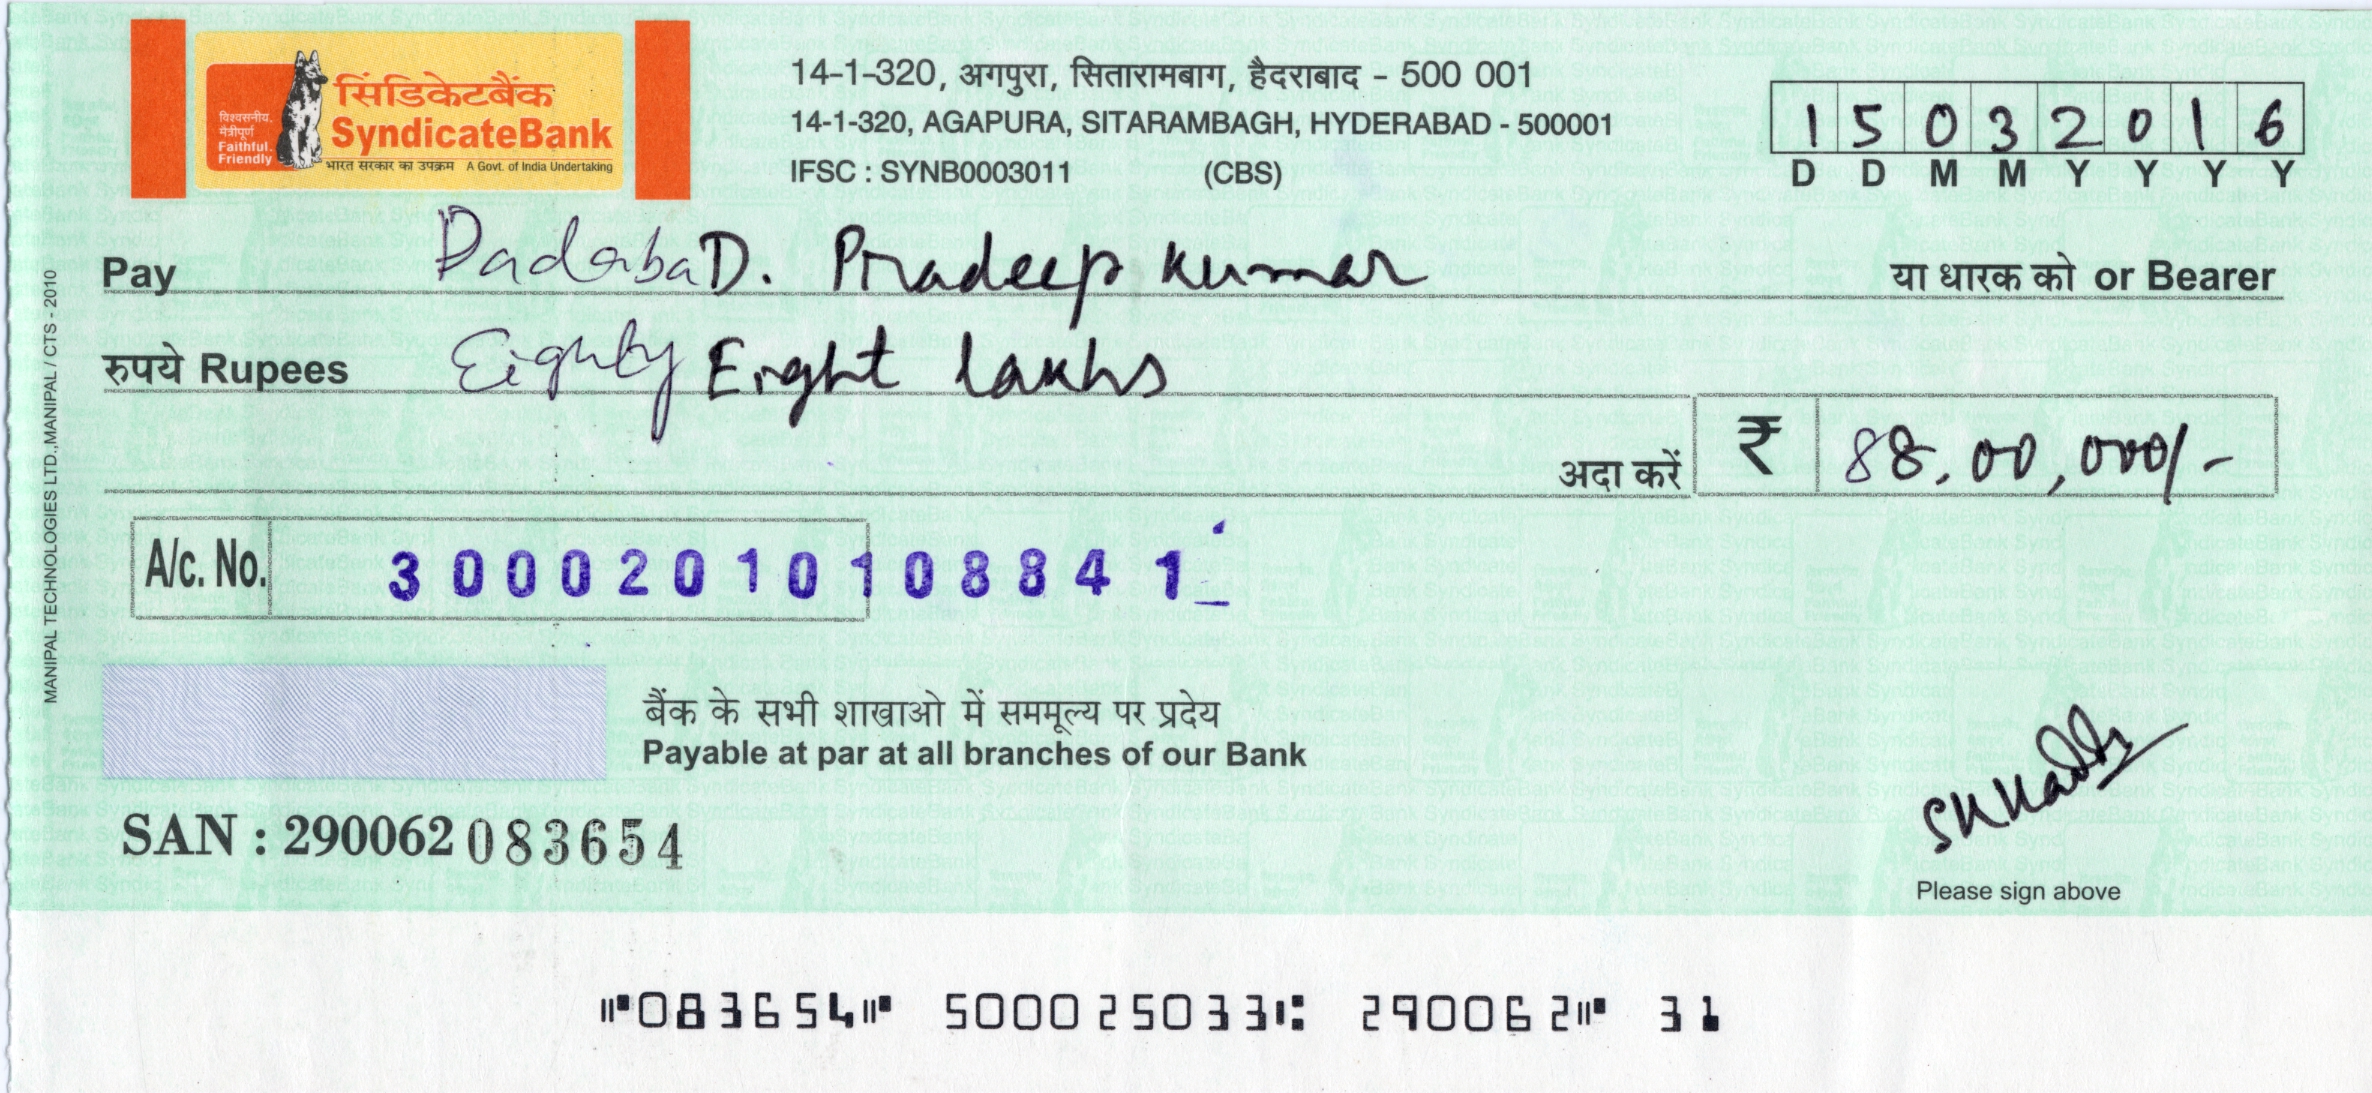 विश्वसनीय.
मैत्रीपूर्ण
Faithful.
Friendly
सिंडिकेटबैंक
SyndicateBank
भारत सरकार का उपक्रम A Govt. of India Undertaking
14-1-320, अगपुरा, सितारामबाग, हैदराबाद - 500 001
14-1-320, AGAPURA, SITARAMBAGH, HYDERABAD - 500001
IFSC : SYNB0003011 (CBS)
1 5 0 3 2 0 1 6
D D M M Y Y Y Y
Pay D. Pradeep Kumar या धारक को or Bearer
रुपये Rupees Eighty Eight lakhs
अदा करें ₹ 88,00,000/-
A/c. No. 30002010108841
बैंक के सभी शाखाओ में सममूल्य पर प्रदेय
Payable at par at all branches of our Bank
SAN : 290062 083654
Please sign above
⑈083654⑈ 500025033⑆ 290062⑈ 31
MANIPAL TECHNOLOGIES LTD.,MANIPAL / CTS - 2010